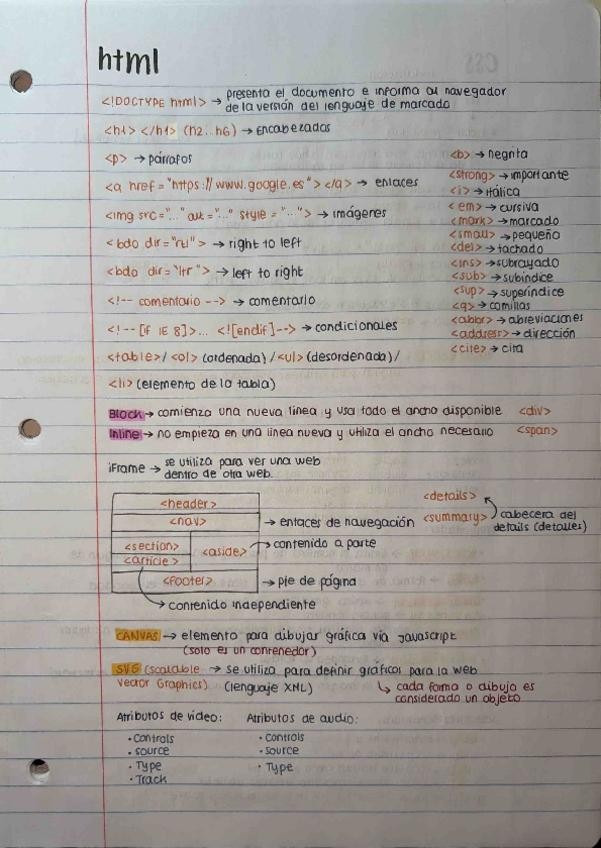 html
<!DOCTYPE html> → presenta el documento e informa al navegador
de la versión del lenguaje de marcado
<h1> </h1> (h2...h6) → encabezados
<p> → párrafos
<a href="https://www.google.es"></a> → enlaces
<img src="..." alt="..." style="..."> → imágenes
<bdo dir="rtl"> → right to left
<bdo dir="ltr"> → left to right
<!-- comentario --> → comentario
<!--[if IE 8]>... <![endif]--> → condicionales
<table>/<ol> (ordenada)/<ul> (desordenada)/
<li> (elemento de la tabla)
<b> → negrita
<strong> → importante
<i> → itálica
<em> → cursiva
<mark> → marcado
<small> → pequeño
<del> → tachado
<ins> → subrayado
<sub> → subíndice
<sup> → superíndice
<q> → comillas
<abbr> → abreviaciones
<address> → dirección
<cite> → cita
Block → comienza una nueva línea y usa todo el ancho disponible <div>
Inline → no empieza en una línea nueva y utiliza el ancho necesario <span>
iFrame → se utiliza para ver una web
dentro de otra web.
<header>
<nav> → enlaces de navegación
<section>
<article>
<aside> → contenido a parte
<footer> → pie de página
→ contenido independiente
<details>
<summary> cabecera del
details (detalles)
CANVAS → elemento para dibujar gráfica vía Javascript
(solo es un contenedor)
SVG (scalable → se utiliza para definir gráficos para la web
Vector Graphics) (lenguaje XML) ↳ cada forma o dibujo es
considerado un objeto
Atributos de vídeo: Atributos de audio:
· Controls · Controls
· source · source
· Type · Type
· Track